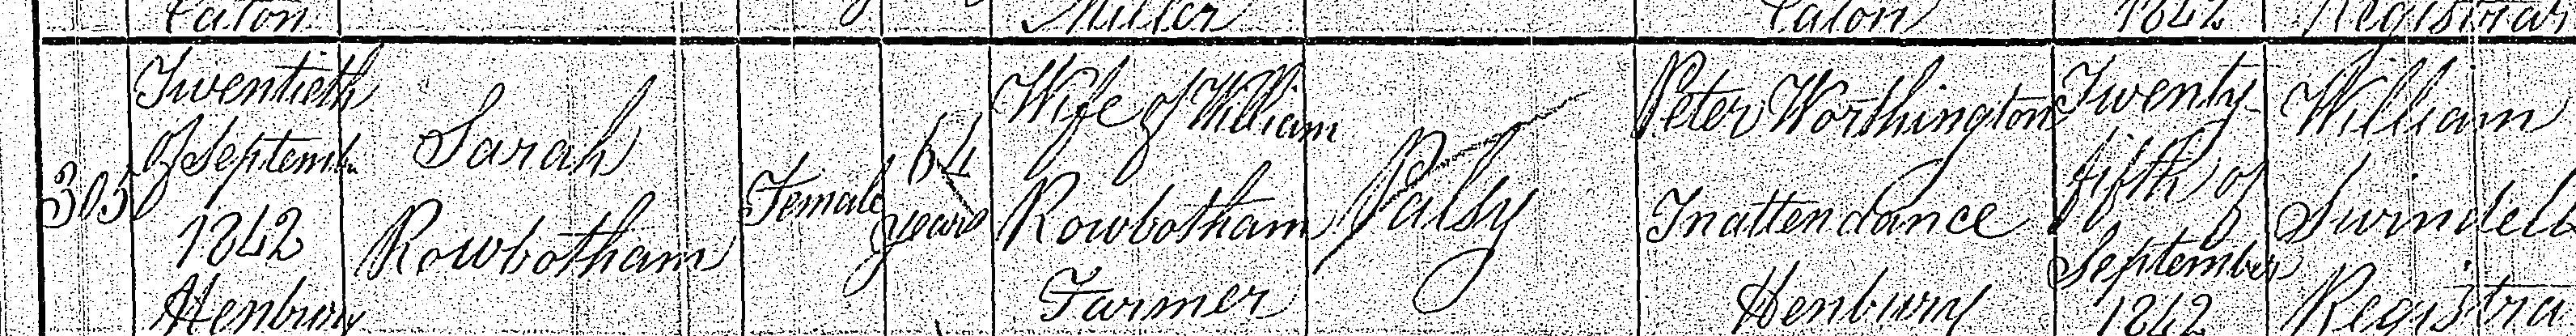 Eaton
Miller
Eaton
1842
Registrar
305
Twentieth
of Septemb
1842
Henbury
Sarah
Rowbotham
Female
64
years
Wife of William
Rowbotham
Farmer
Palsy
Peter Worthington
In attendance
Henbury
Twenty
fifth of
September
1842
William
Swindells
Registrar